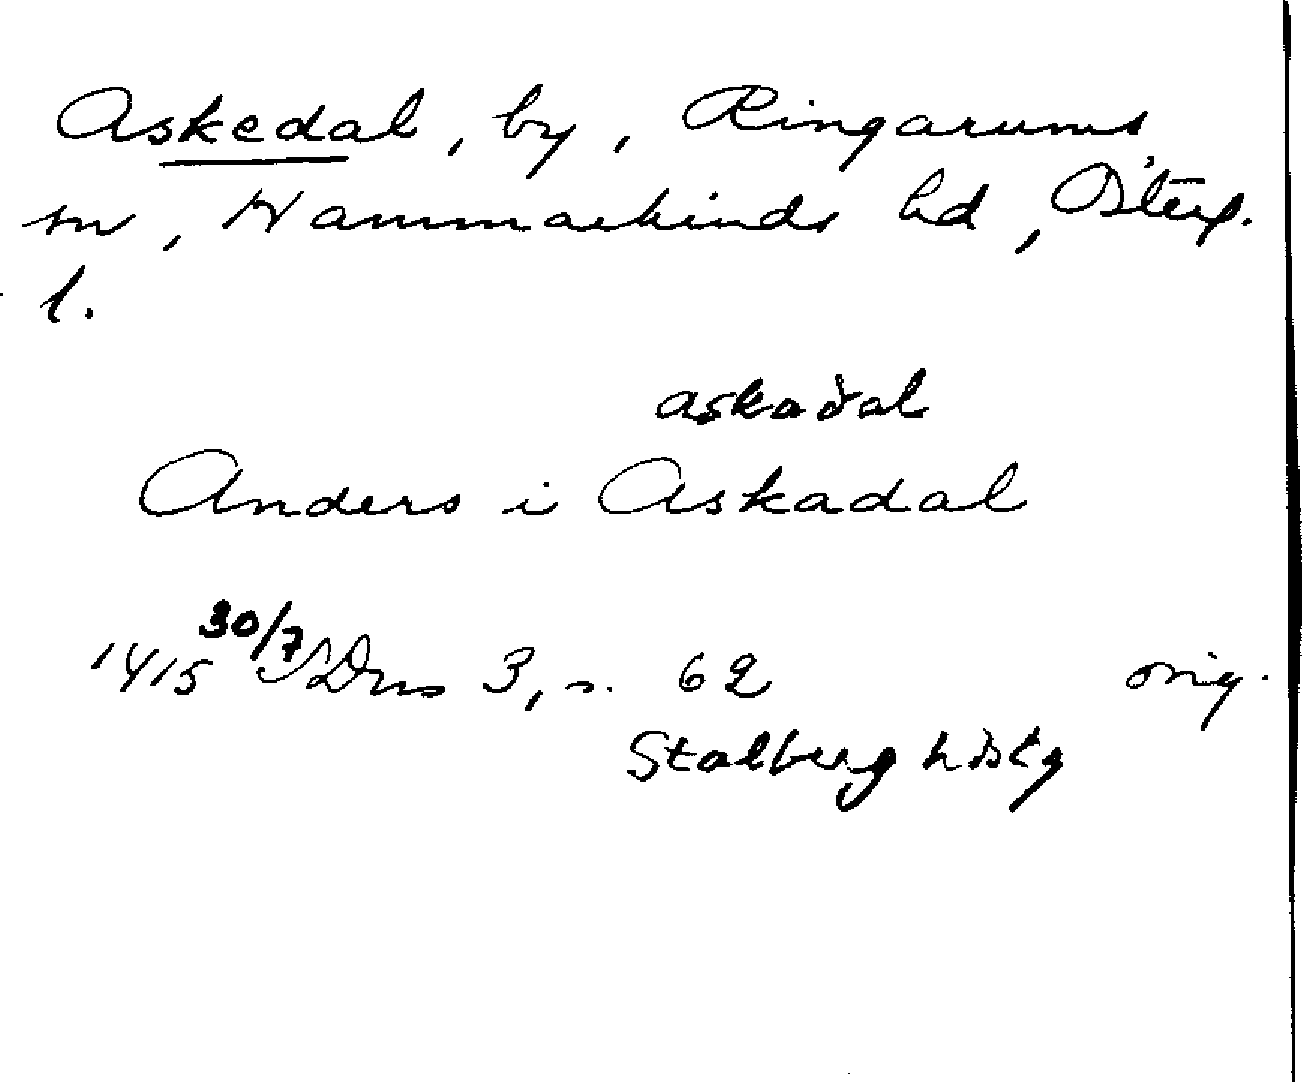 Askedal, by, Ringarums
sn, Hammarkinds hd, Österg.
l.
askadal
Anders i Askadal
1415 30/7 SDns 3, s. 62 orig.
Stalberg